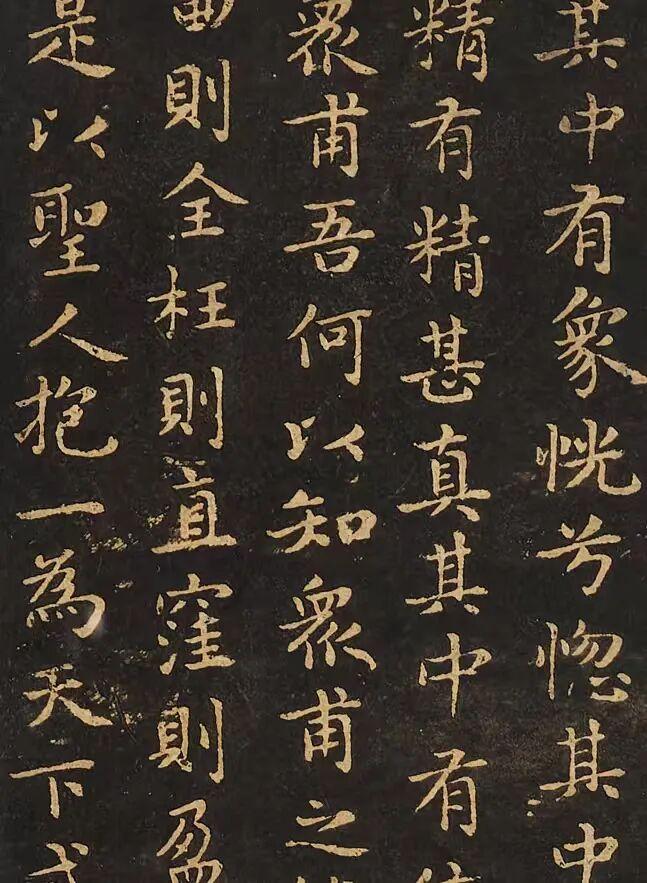 其中有象恍兮惚其中
精有精甚真其中有信
眾甫吾何以知眾甫之
曲則全枉則直窪則盈
是以聖人抱一為天下式